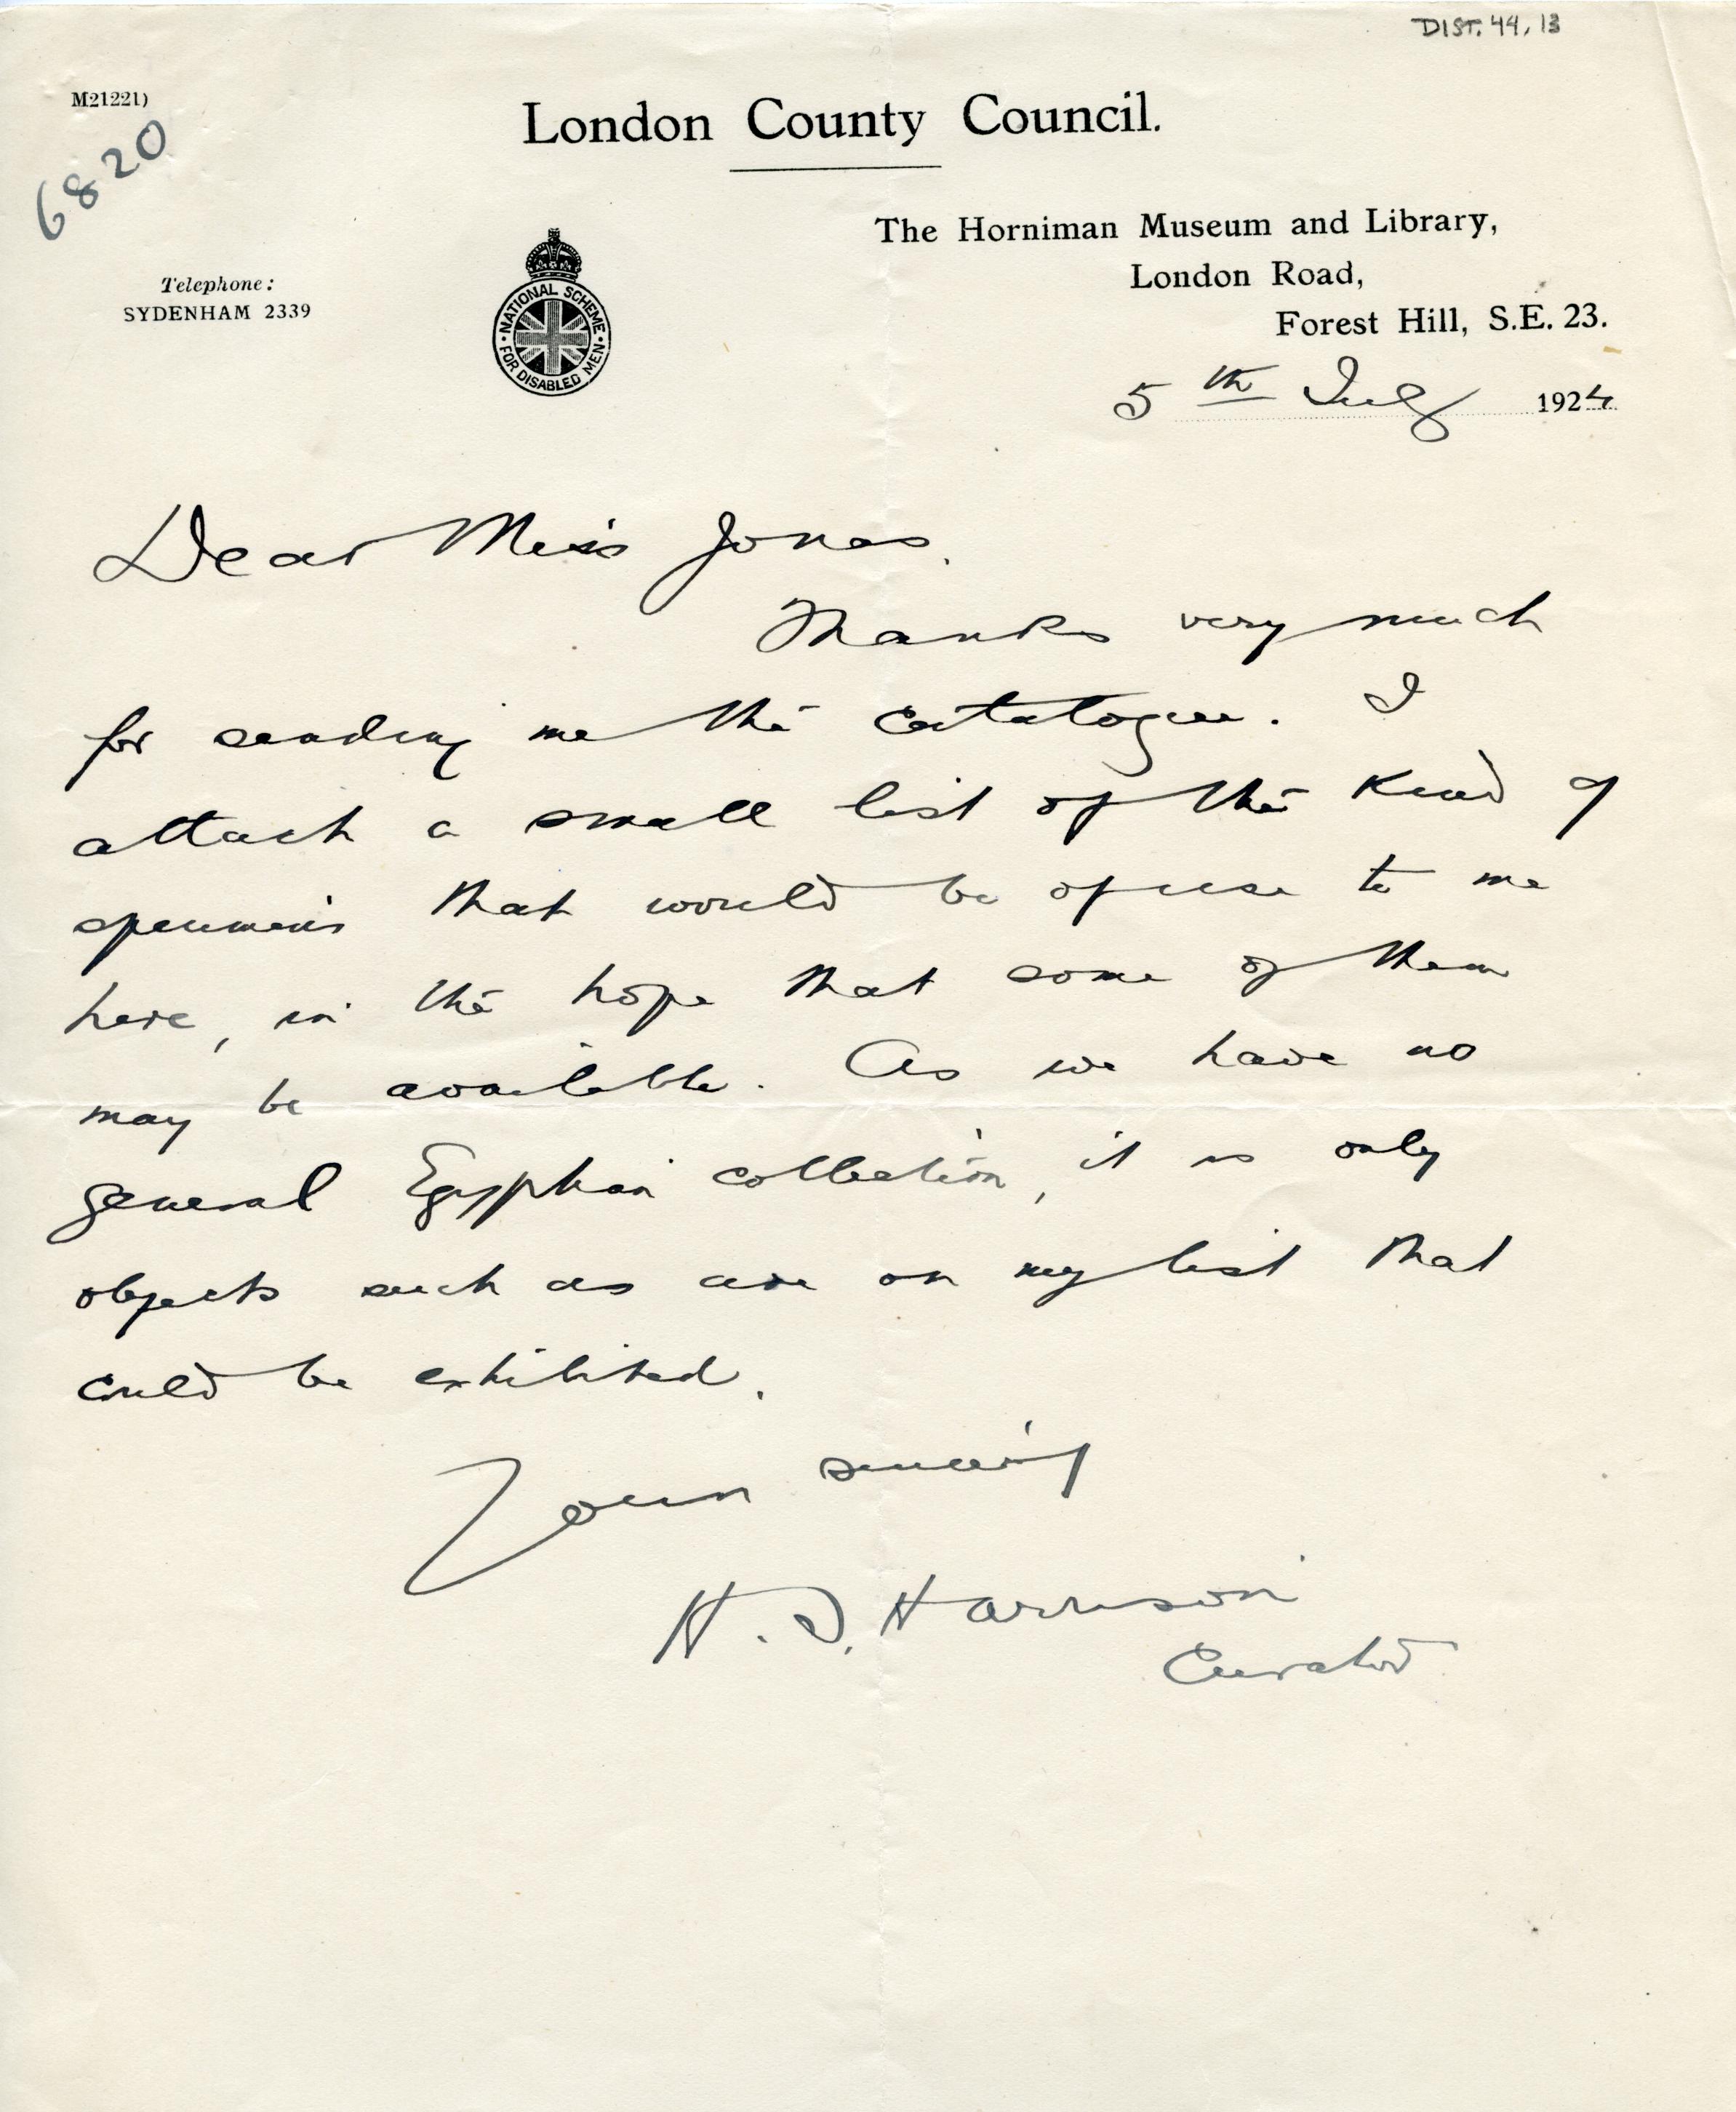 DIST. 44, 13
M21221)
6820
London County Council.
Telephone:
SYDENHAM 2339
NATIONAL SCHEME
FOR DISABLED MEN
The Horniman Museum and Library,
London Road,
Forest Hill, S.E. 23.
5th July 1924
Dear Miss Jonas.
Thanks very much
for sending me the catalogue. I
attach a small list of the kind of
specimens that would be of use to me
here, in the hope that some of them
may be available. As we have no
general Egyptian collection, it is only
objects such as are on my list that
could be exhibited.
Yours sincerely
H. S. Harrison
Curator